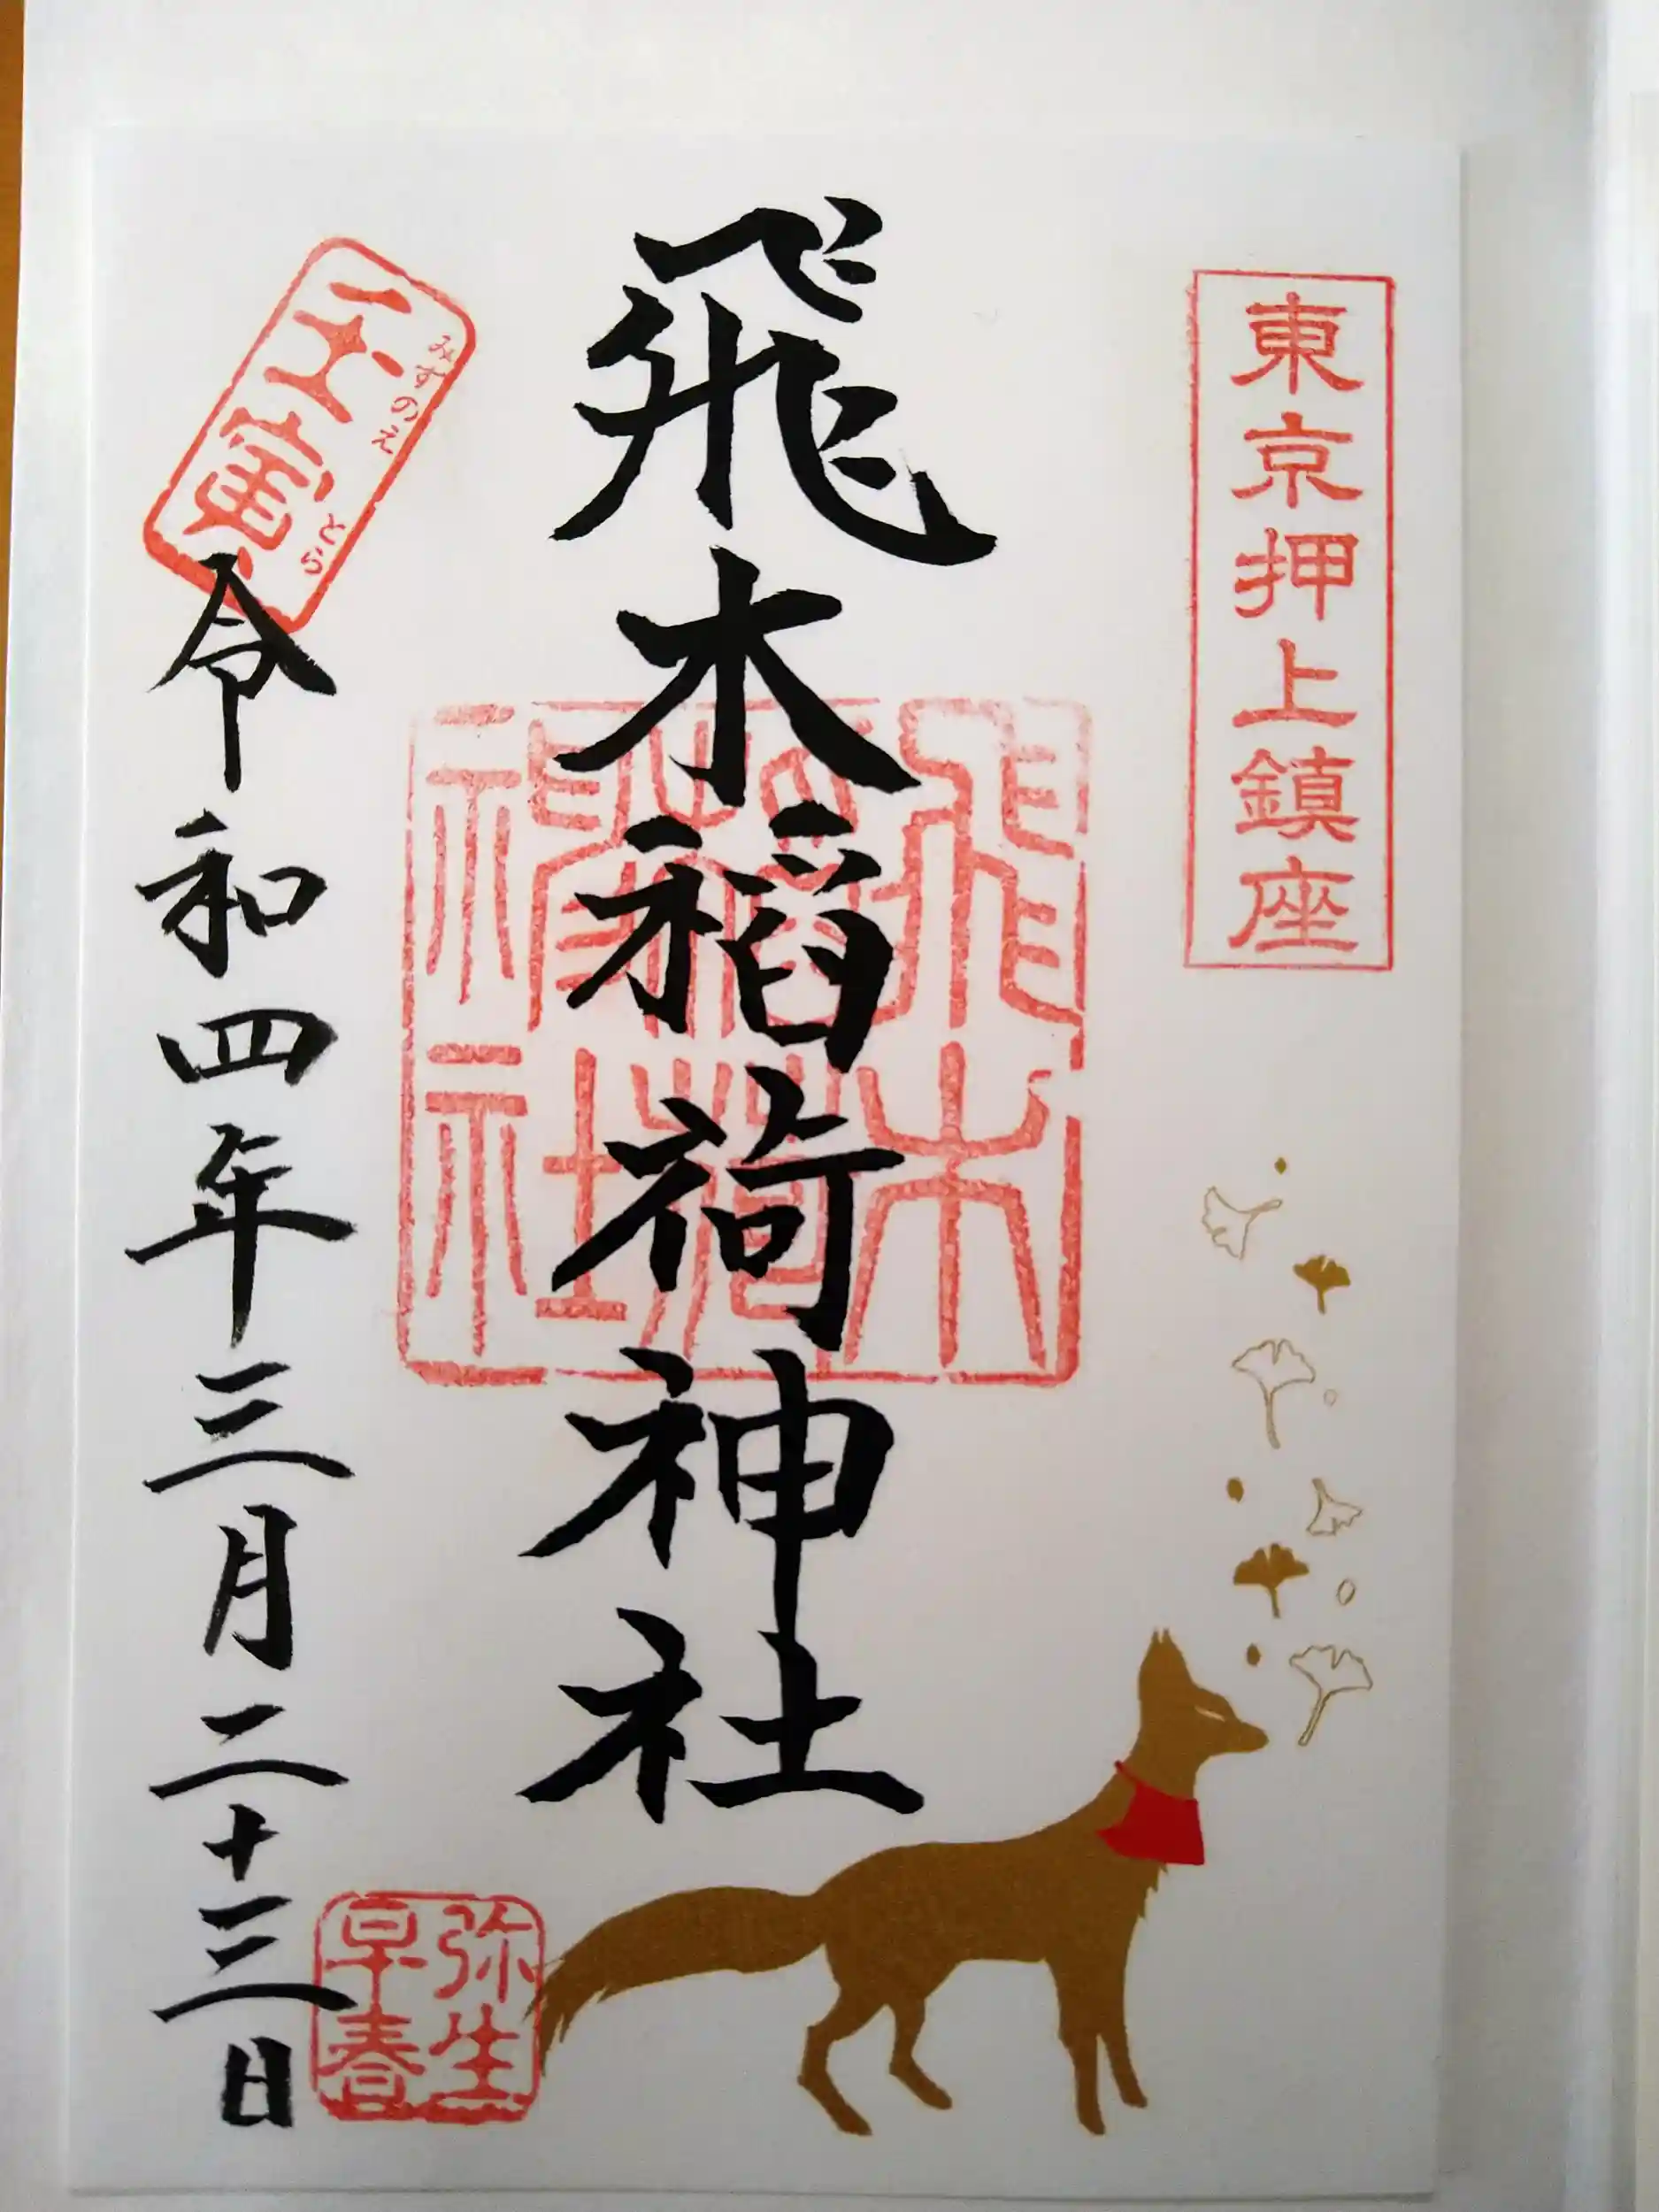 東京押上鎮座
飛木稲荷神社
飛木
稲荷
神社
壬寅
みずのえ とら
令和四年三月二十三日
弥生
早春